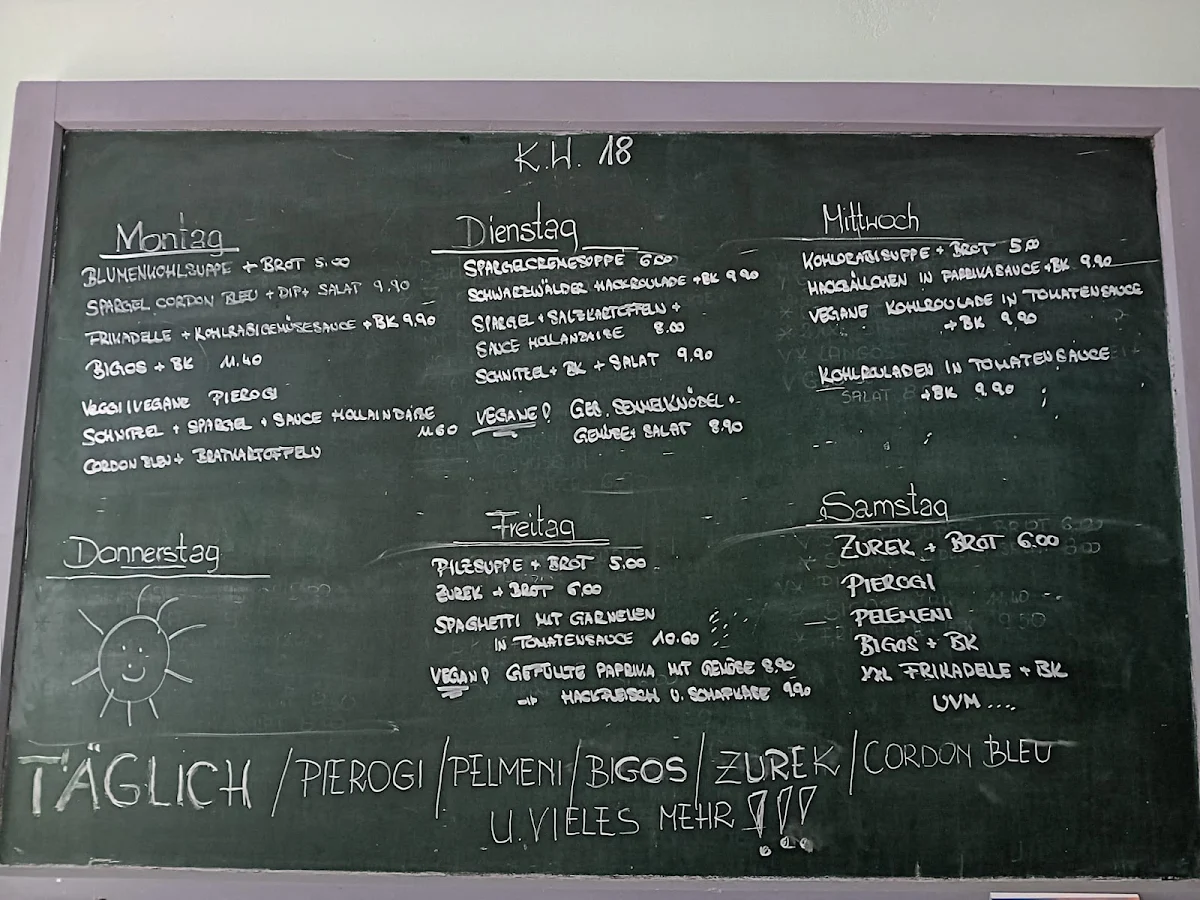 K.W. 18
Montag
BLUMENKOHLSUPPE + BROT 5.00
SPARGEL CORDON BLEU + DIP + SALAT 9.90
FRIKADELLE + KOHLRABIGEMÜSESAUCE + BK 9,90
BIGOS + BK 11.40
VEGGI/VEGANE PIEROGI
SCHNITZEL + SPARGEL + SAUCE HOLLAINDÄRE
11.60
CORDON BLEU + BRATKARTOFFELN
Dienstag
SPARGELCREMESUPPE 6.00
SCHWARZWÄLDER HACKROULADE + BK 9.90
SPARGEL + SALZKARTOFFELN +
SAUCE HOLLANDAISE 8.00
SCHNITZEL + BK + SALAT 9.90
VEGANE! GEB. SEMMELKNÖDEL +
GEMÜSE + SALAT 8.90
Mittwoch
KOHLRABISUPPE + BROT 5.00
HACKBÄLLCHEN IN PAPRIKASAUCE + BK 9.90
VEGANE KOHLROULADE IN TOMATENSAUCE
+ BK 9.90
KOHLROULADEN IN TOMATENSAUCE
+ BK 9.90
Donnerstag
Freitag
PILZSUPPE + BROT 5.00
ZUREK + BROT 6.00
SPAGHETTI MIT GARNELEN
IN TOMATENSAUCE 10.60
VEGAN! GEFÜLLTE PAPRIKA MIT GEMÜSE 8.90
-11- HACKFLEISCH U. SCHAFKÄSE 9.90
Samstag
ZUREK + BROT 6.00
PIEROGI
PELEMENI
BIGOS + BK
XXL FRIKADELLE + BK
UVM....
TÄGLICH / PIEROGI / PELMENI / BIGOS / ZUREK / CORDON BLEU
U. VIELES MEHR !!!